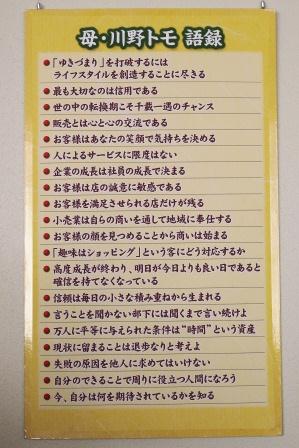 母・川野トモ 語録
「ゆきづまり」を打破するには
ライフスタイルを創造することに尽きる
最も大切なのは信用である
世の中の転換期こそ千載一遇のチャンス
販売とは心と心の交流である
お客様はあなたの笑顔で気持ちを決める
人によるサービスに限度はない
企業の成長は社員の成長で決まる
お客様は店の誠意に敏感である
お客様を満足させられる店だけが残る
小売業は自らの商いを通して地域に奉仕する
お客様の顔を見つめることから商いは始まる
「趣味はショッピング」という客にどう対応するか
高度成長が終わり、明日が今日よりも良い日であると
確信を持てなくなっている
信頼は毎日の小さな積み重ねから生まれる
言うことを聞かない部下には聞くまで言い続けよ
万人に平等に与えられた条件は“時間”という資産
現状に留まることは退歩なりと考えよ
失敗の原因を他人に求めてはいけない
自分のできることで周りに役立つ人間になろう
今、自分は何を期待されているかを知る